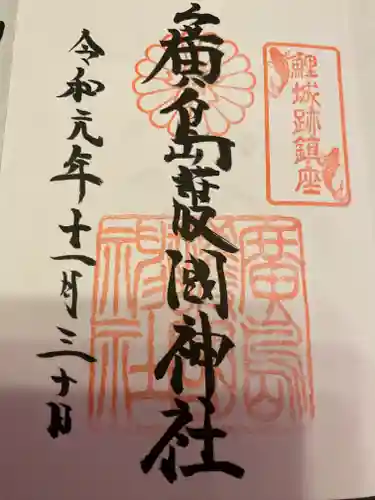 鯉城跡鎮座
廣島護國神社
令和元年十一月三十日
廣島護國神社